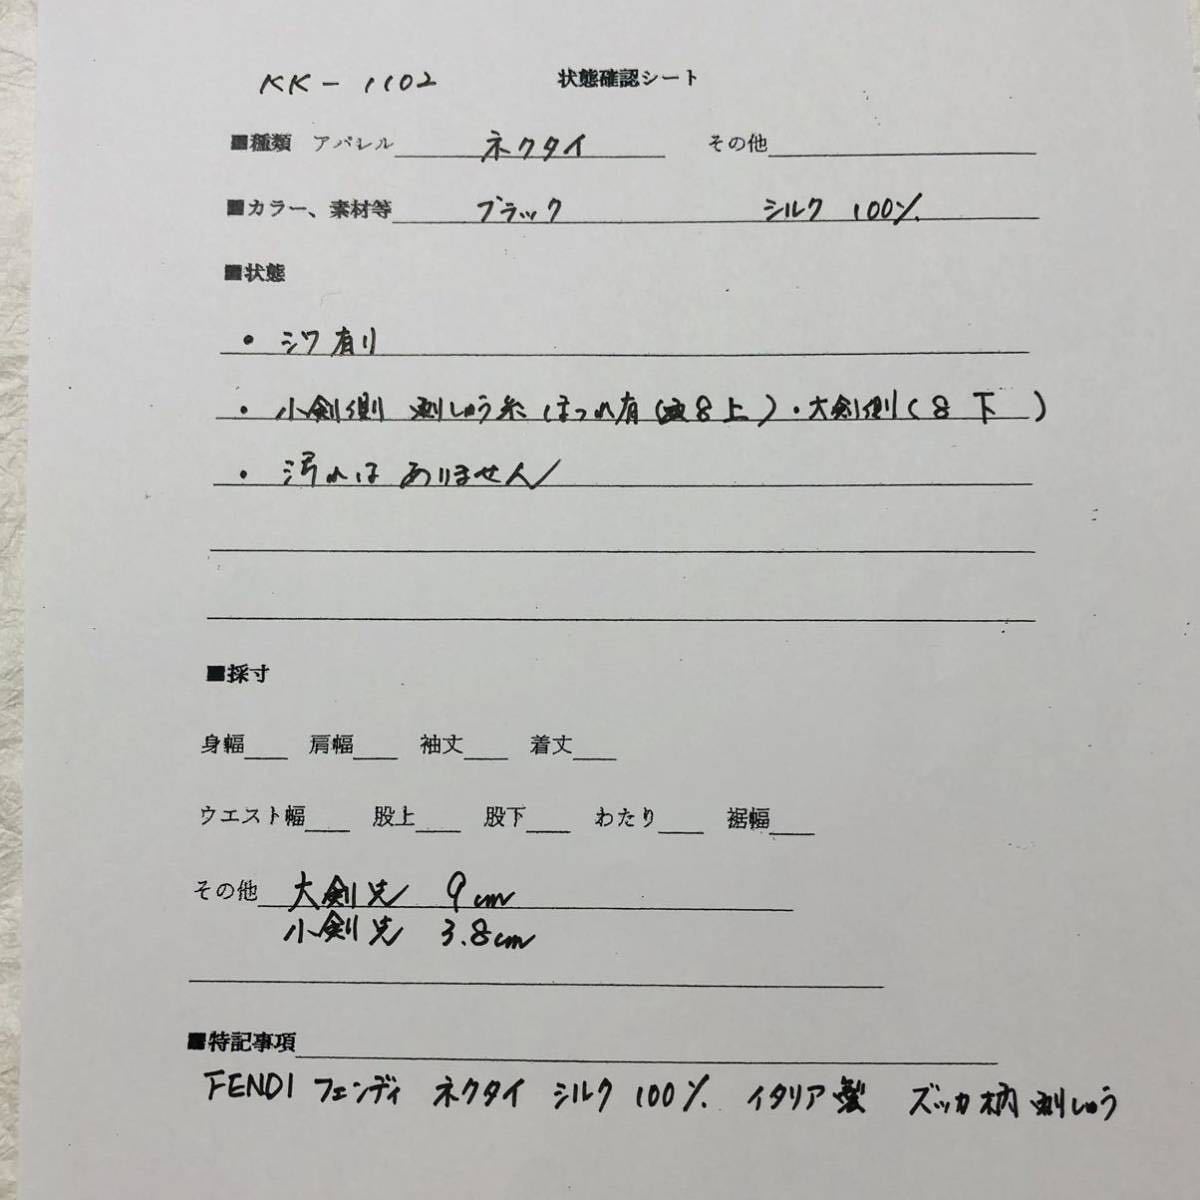 KK－1102 状態確認シート
■種類 アパレル ネクタイ その他
■カラー、素材等 ブラック シルク 100%
■状態
・シワ有り
・小剣側 刺しゅう糸 ほつれ有(8上)・大剣側(8下)
・汚れは ありません
■採寸
身幅 肩幅 袖丈 着丈
ウエスト幅 股上 股下 わたり 裾幅
その他 大剣先 9cm
小剣先 3.8cm
■特記事項
FENDI フェンディ ネクタイ シルク 100% イタリア製 ズッカ柄 刺しゅう